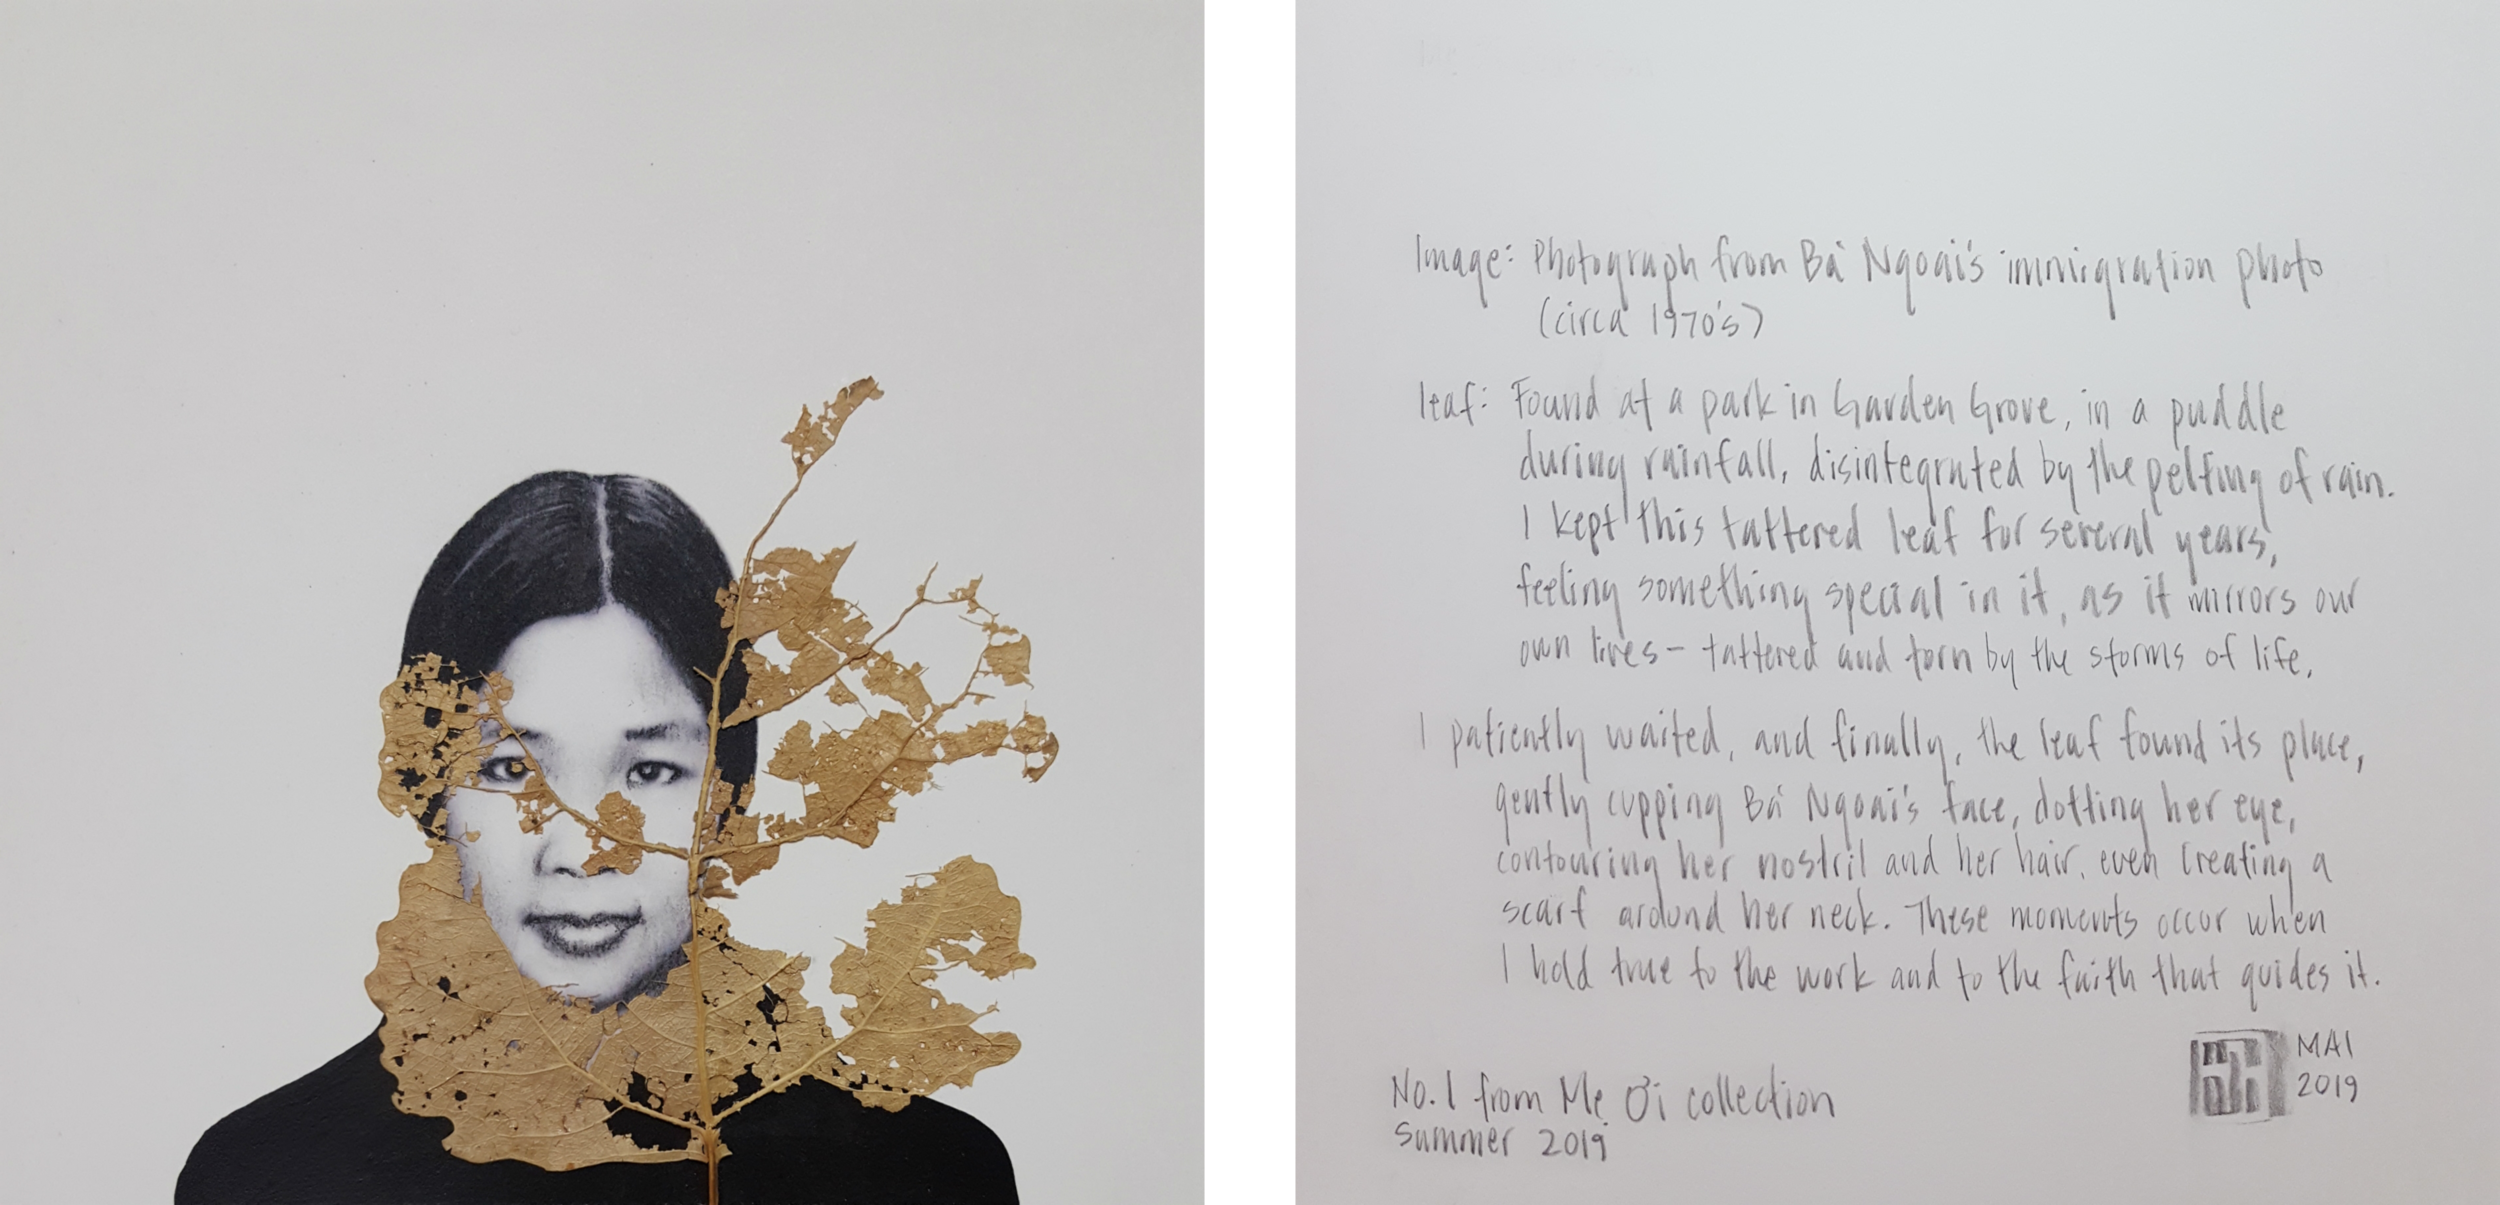 Image: Photograph from Bà Ngoại's immigration photo
(circa 1970's)
leaf: Found at a park in Garden Grove, in a puddle
during rainfall, disintegrated by the pelting of rain.
I kept this tattered leaf for several years,
feeling something special in it, as it mirrors our
own lives – tattered and torn by the storms of life.
I patiently waited, and finally, the leaf found its place,
gently cupping Bà Ngoại's face, dotting her eye,
contouring her nostril and her hair, even creating a
scarf around her neck. These moments occur when
I hold true to the work and to the faith that guides it.
No. 1 from Mẹ Ơi collection
Summer 2019
MAI
2019